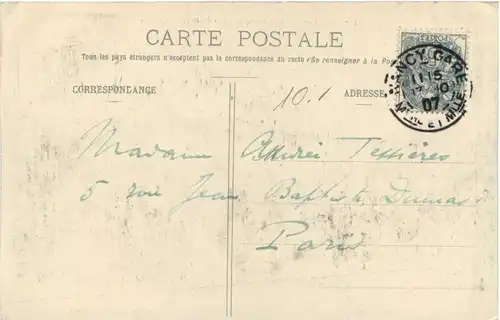 CARTE POSTALE
Tous les pays étrangers n'acceptent pas la correspondance du recto (Se renseigner à la Poste
CORRESPONDANCE
10.1
ADRESSE
NANCY GARE
11 15
10
07
MRTHE ET MLLE
Madame Teissières
5 rue Jean Baptiste Dumas
Paris